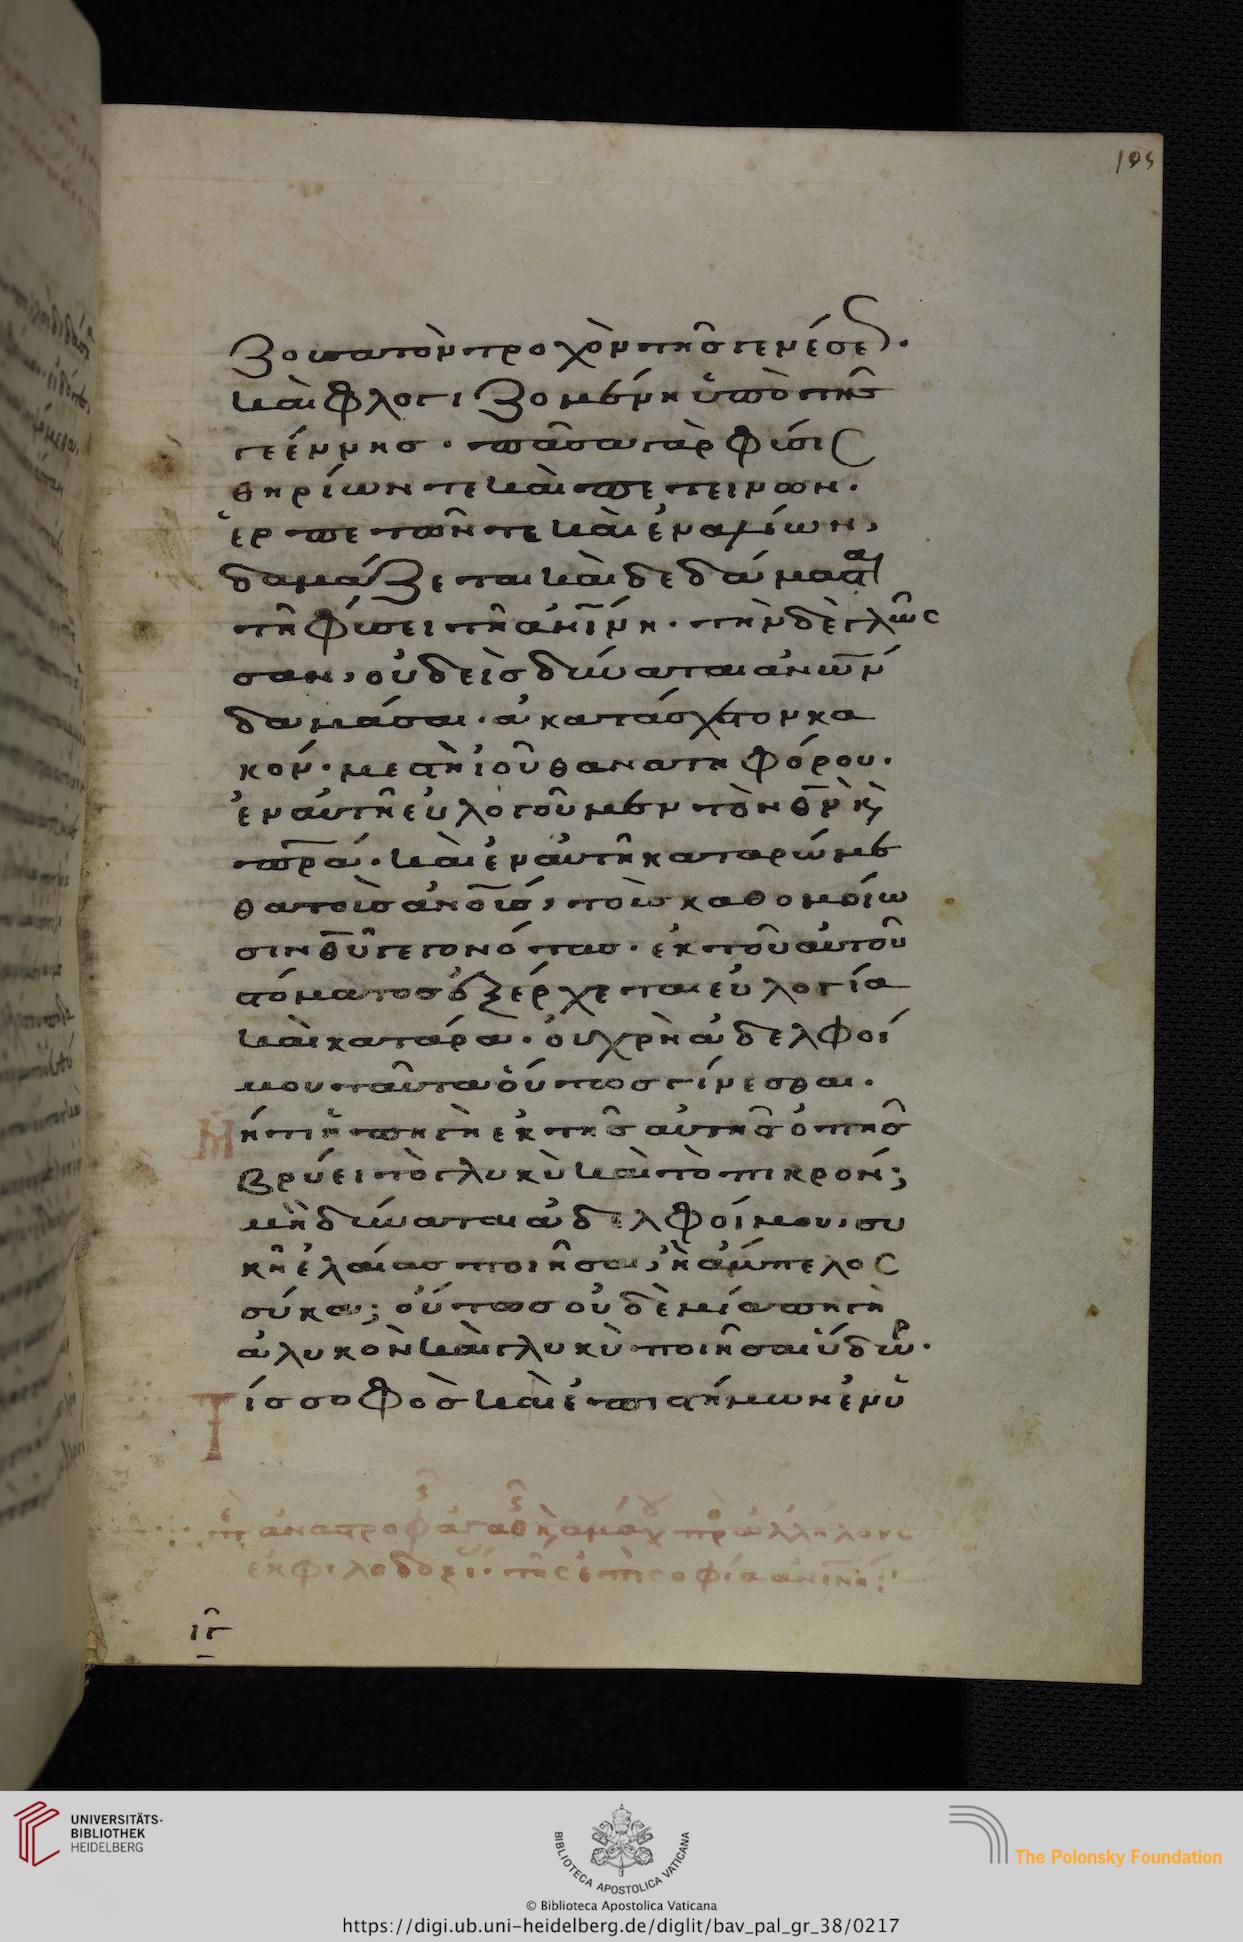 105
ζουσα τὸν τροχὸν τῆς γενέσε(ως).
καὶ φλογιζομένη ὑπὸ τῆς
γεέννης · πᾶσα γὰρ φύσις
θηρίων τε καὶ πετεινων.
ἑρπετῶν τε καὶ ἐναλίων,
δαμάζεται καὶ δεδάμασται
τῆ φύσει τῆ ἀνίνη · τὴν δὲ γλῶσ
σαν, οὐδεὶς δύναται ἀνων
δαμάσαι · ἀκατάσχετον κα
κόν · μεστὴ ἰοῦ θανατηφόρου.
ἐν αὐτῆ εὐλογοῦμεν τὸν θν κ(αὶ)
πρα · καὶ ἐν αὐτῆ καταρώμε
θα τοὺς ἀνους, τοὺς καθομοίω
σιν θυ γεγονότας · ἐκ τοῦ αὐτοῦ
στόματος ἐξέρχεται εὐλογία
καὶ κατάρα · οὐ χρὴ ἀδελφοί
μου ταῦτα οὕτως γίνεσθαι.
Μήτι ἡ πηγὴ ἐκ τῆς αὐτῆς ὀπῆς
βρύει τὸ γλυκὺ καὶ τὸ πικρόν;
μὴ δύναται ἀδελφοί μου, συ
κῆ ἐλαίας ποιῆσαι, ἢ ἄμπελος
σύκα; οὕτως οὐδὲ μία πηγὴ
ἁλυκὸν καὶ γλυκὺ ποιῆσαι ὕδωρ.
Τίς σοφὸς καὶ ἐπιστήμων ἐν ὑ
ιγ
UNIVERSITÄTS-
BIBLIOTHEK
HEIDELBERG
BIBLIOTECA APOSTOLICA VATICANA
The Polonsky Foundation
© Biblioteca Apostolica Vaticana
https://digi.ub.uni-heidelberg.de/diglit/bav_pal_gr_38/0217